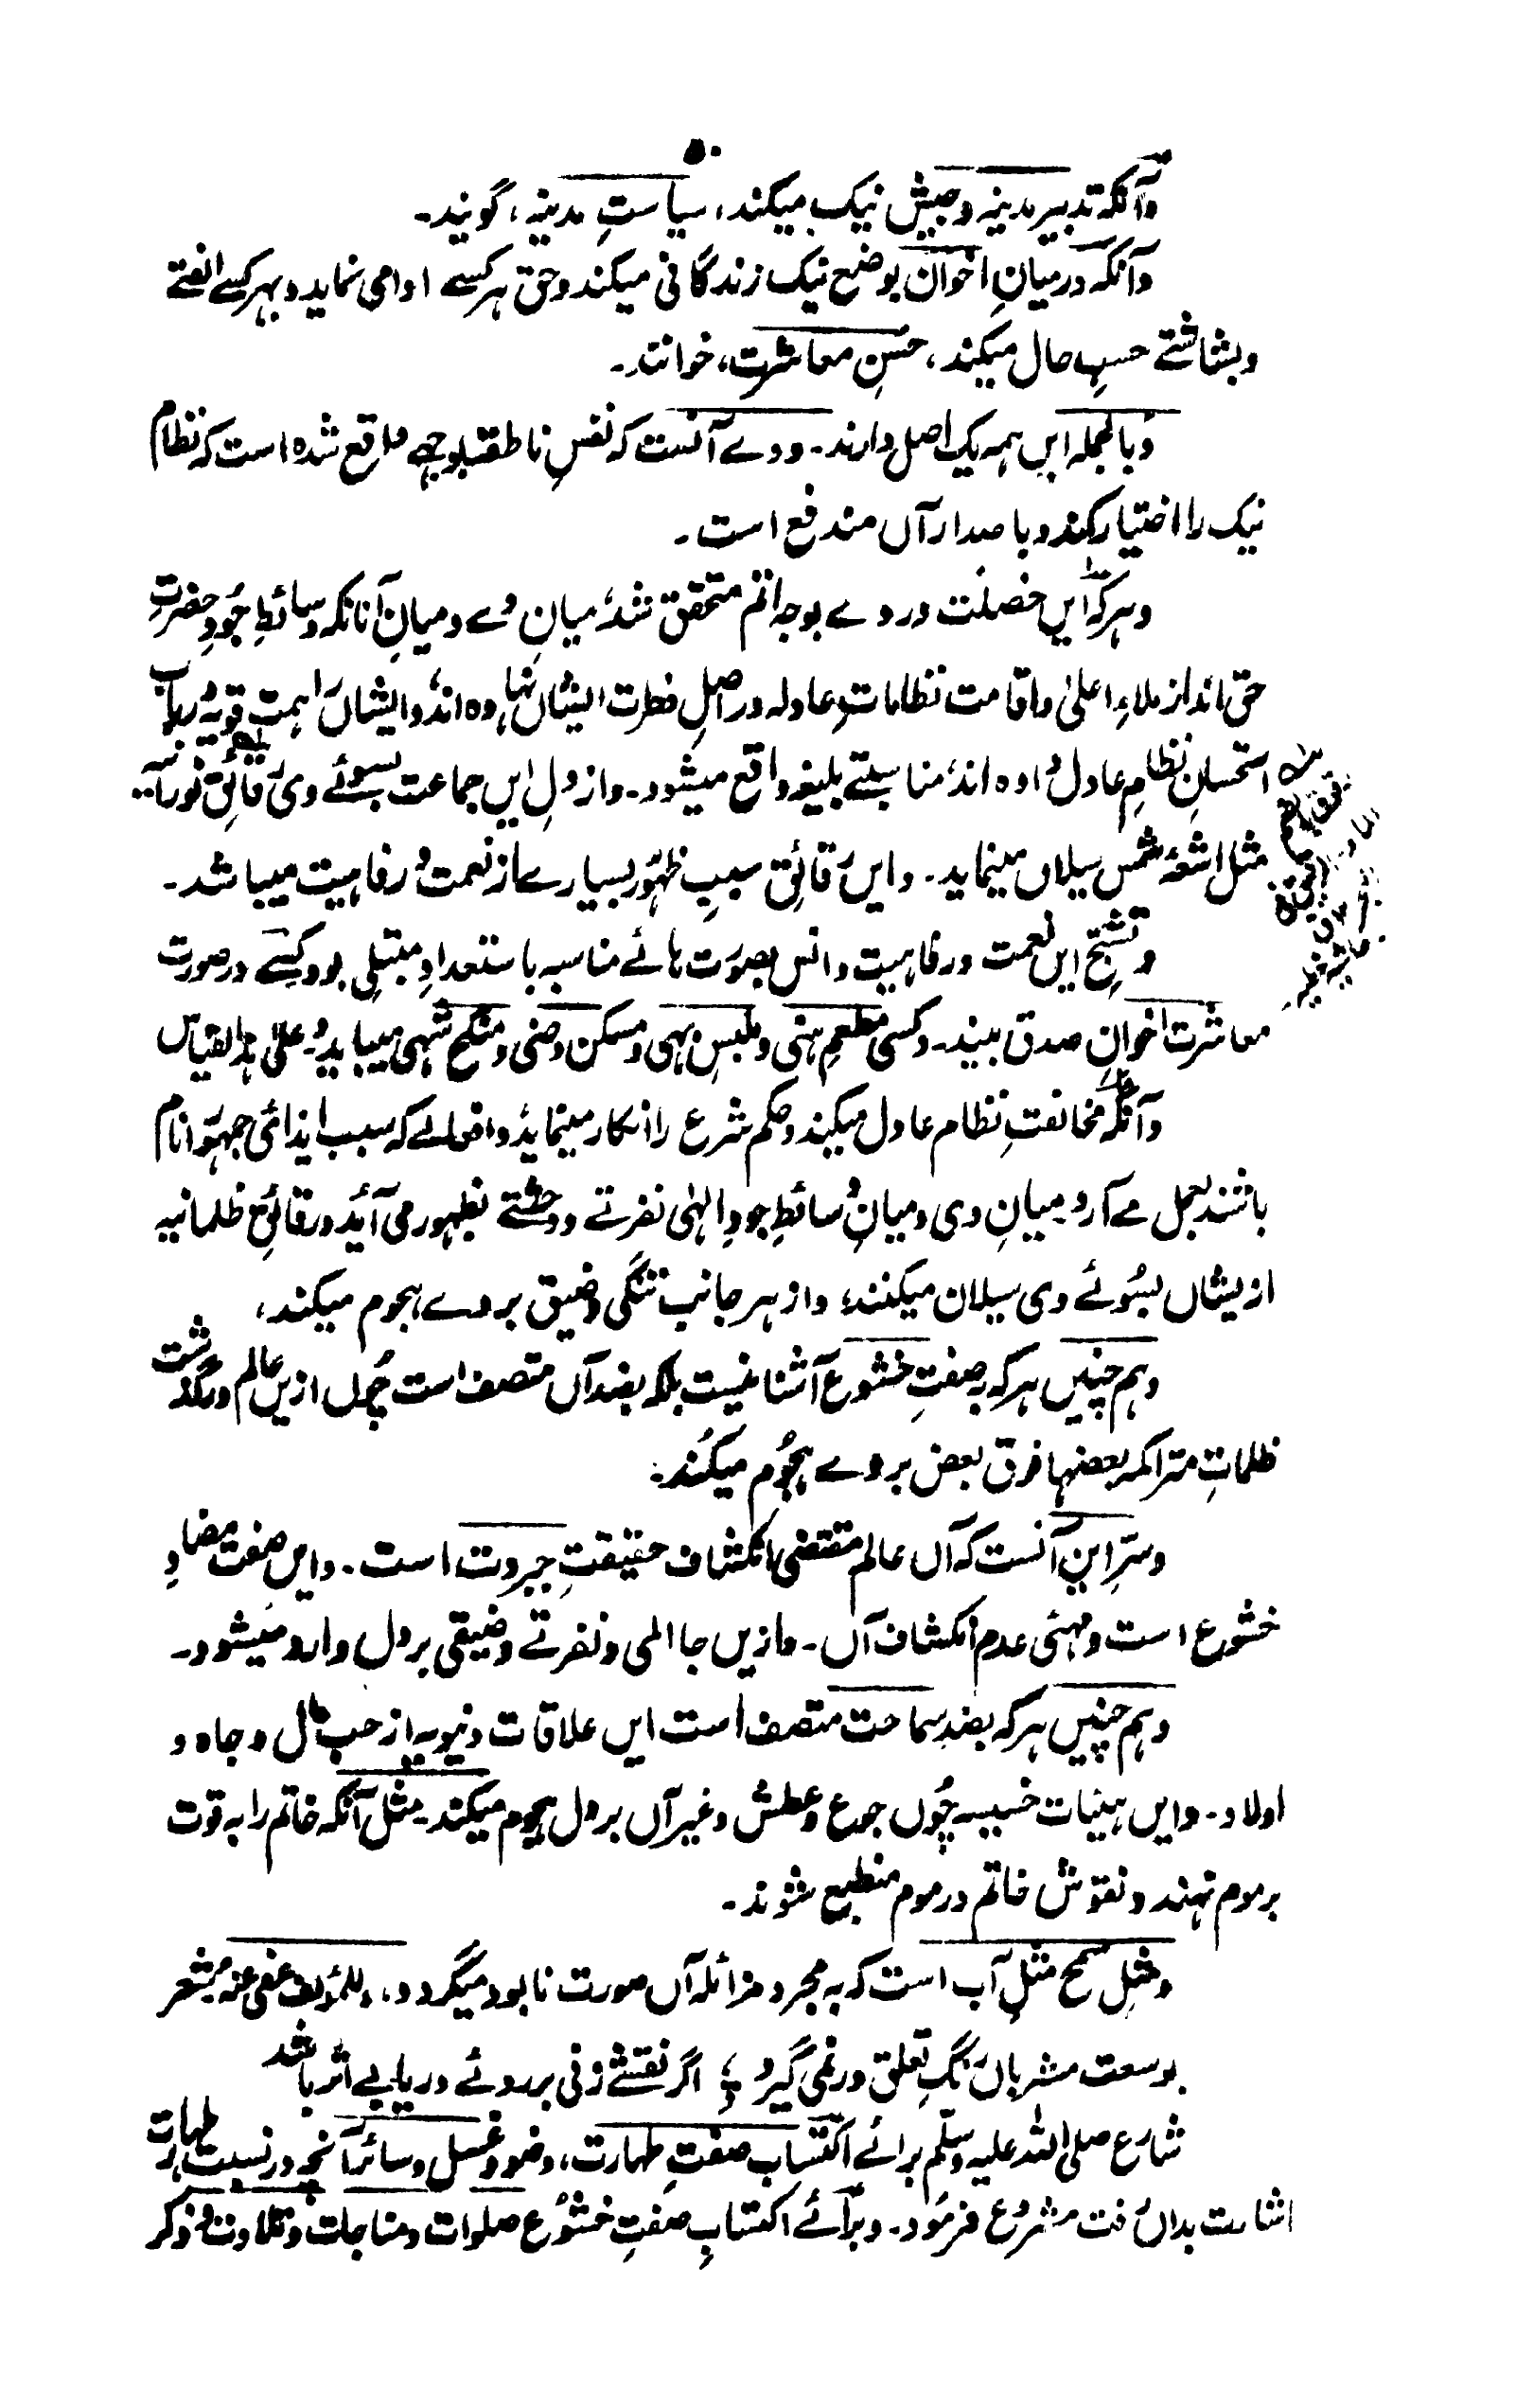 ۵۰
وآنکہ تدبیر مدینہ و جیش نیک میکند، سیاستِ مدینہ، گویند۔
وآنکہ درمیانِ اخوان بوضع نیک زندگانی میکند و حق ہر کسے ادا می نماید و بہر کسے الفتے
و بشاشتے حسبِ حال میکند، حسنِ معاشرت، خوانند۔
و بالجملہ ایں ہمہ یک اصل دارند۔ و وے آنست کہ نفسِ ناطقہ بوجہے واقع شدہ است کہ نظام
نیک را اختیار کند و باصدار آں مندفع است۔
و ہر کہ ایں خصلت در وے بوجہ اتم متحقق شد، میانِ وے و میانِ آنانکہ وسائطِ جُودِ حضرتِ
حق اند از ملاءِ اعلیٰ و اقامت نظاماتِ عادلہ در اصلِ فطرت ایشاں نہادہ اند، و ایشاں را ہمتِ قویہ در باب
استحسانِ نظامِ عادل دادہ اند، مناسبتے بلیغہ واقع میشود۔ و از دلِ ایں جماعت بسوئے وی رقائقِ نورانیہ
مثل اشعۂ شمس سیلاں مینماید۔ و ایں رقائق سببِ ظہور بسیارے از نعمت و رفاہیت میباشد۔
و تشبحِ ایں نعمت و رفاہیت و انس بصورت ہائے مناسبہ باستعدادِ مبتلی بود کسے در صورت
معاشرت اخوانِ صدق بیند۔ و کسی مطعمِ ہنی و ملبسِ بہی و مسکن وضی و منکح شہی مییابد، و علیٰ ہذا القیاس
وآنکہ مخالفتِ نظام عادل میکند و حکم شرع را انکار مینماید، و افعالے کہ سبب ایذائی جمہور انام
باشند بعمل مے آرد میانِ وی و میانِ وسائطِ جودِ الٰہی نفرتے و وحشتے بظہور می آید و رقائقِ ظلمانیہ
ازیشاں بسُوئے وی سیلان میکنند، و از ہر جانب تنگی و ضیق بر وے ہجوم میکند،
و ہم چنیں ہر کہ بصفتِ خشوع آشنا نیست بلکہ بضد آں متصف است چوں ازیں عالم درگذشت
ظلماتِ متراکمہ بعضہا فوق بعض بر وے ہجُوم میکند۔
و سرِّ ایں آنست کہ آں عالم مقتضی انکشاف حقیقتِ جبروت است۔ و ایں صفت مضادِ
خشوع است و مہیّ عدم انکشاف آں۔ و ازیں جا المی و نفرتے و ضیقی بر دل وارد میشود۔
و ہم چنیں ہر کہ بضدِ سماحت متصف است ایں علاقات دنیویہ از حب مال و جاہ و
اولاد۔ و ایں ہیئات خسیسہ چُوں جوع و عطش و غیر آں بر دل ہجوم میکند۔ مثل آنکہ خاتم را بہ قوت
بر موم نہند و نقوش خاتم در موم منطبع شوند۔
و مثلِ سمح مثلِ آب است کہ بہ مجرد مزائلہ آں صورت نابود میگردد، للمؤلف عفی عنہ شعر
بوسعت مشرباں رنگِ تعلق در نمی گیرد؛ اگر نقشے زنی بر روئے دریا بے اثر باشد
شارع صلی اللہ علیہ وسلّم برائے اکتسابِ صفتِ طہارت، وضو و غسل و سائر آنچہ در نسبت طہارت
اشارت بداں رفت مشروع فرمُود۔ و برائے اکتسابِ صفتِ خشُوع صلوات و مناجات و تلاوت و ذکر